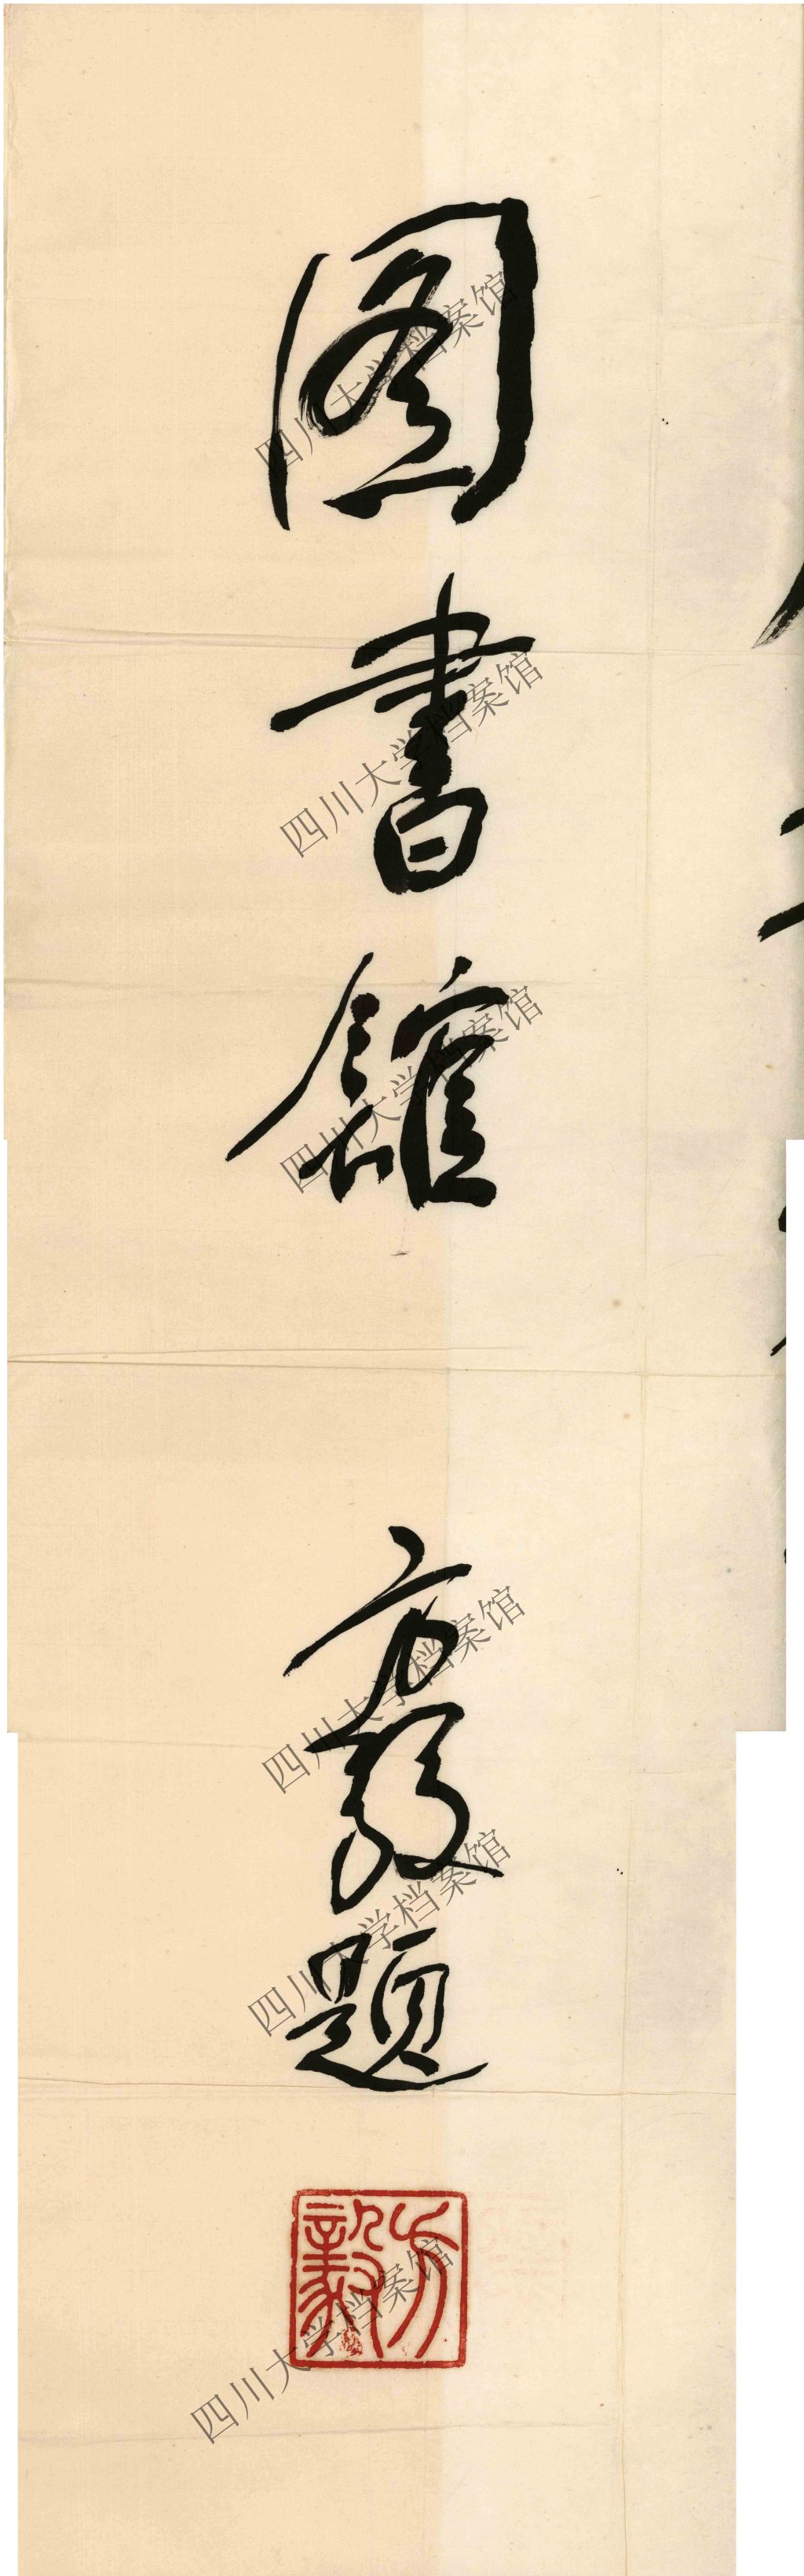 图書館
方毅題
方毅
四川大学档案馆
四川大学档案馆
四川大学档案馆
四川大学档案馆
四川大学档案馆
四川大学档案馆